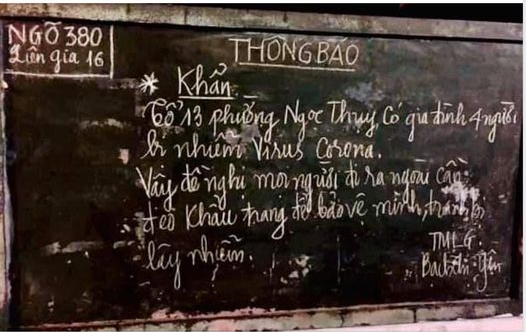 NGÕ 380
Liên gia 16
THÔNG BÁO
* Khẩn.
Tổ 13 phường Ngọc Thụy, Có gia đình 4 người
bị nhiễm Virus Corona.
Vậy đề nghị mọi người đi ra ngoài cần
đeo Khẩu trang để bảo vệ mình, tránh bị
lây nhiễm.
TMLG.